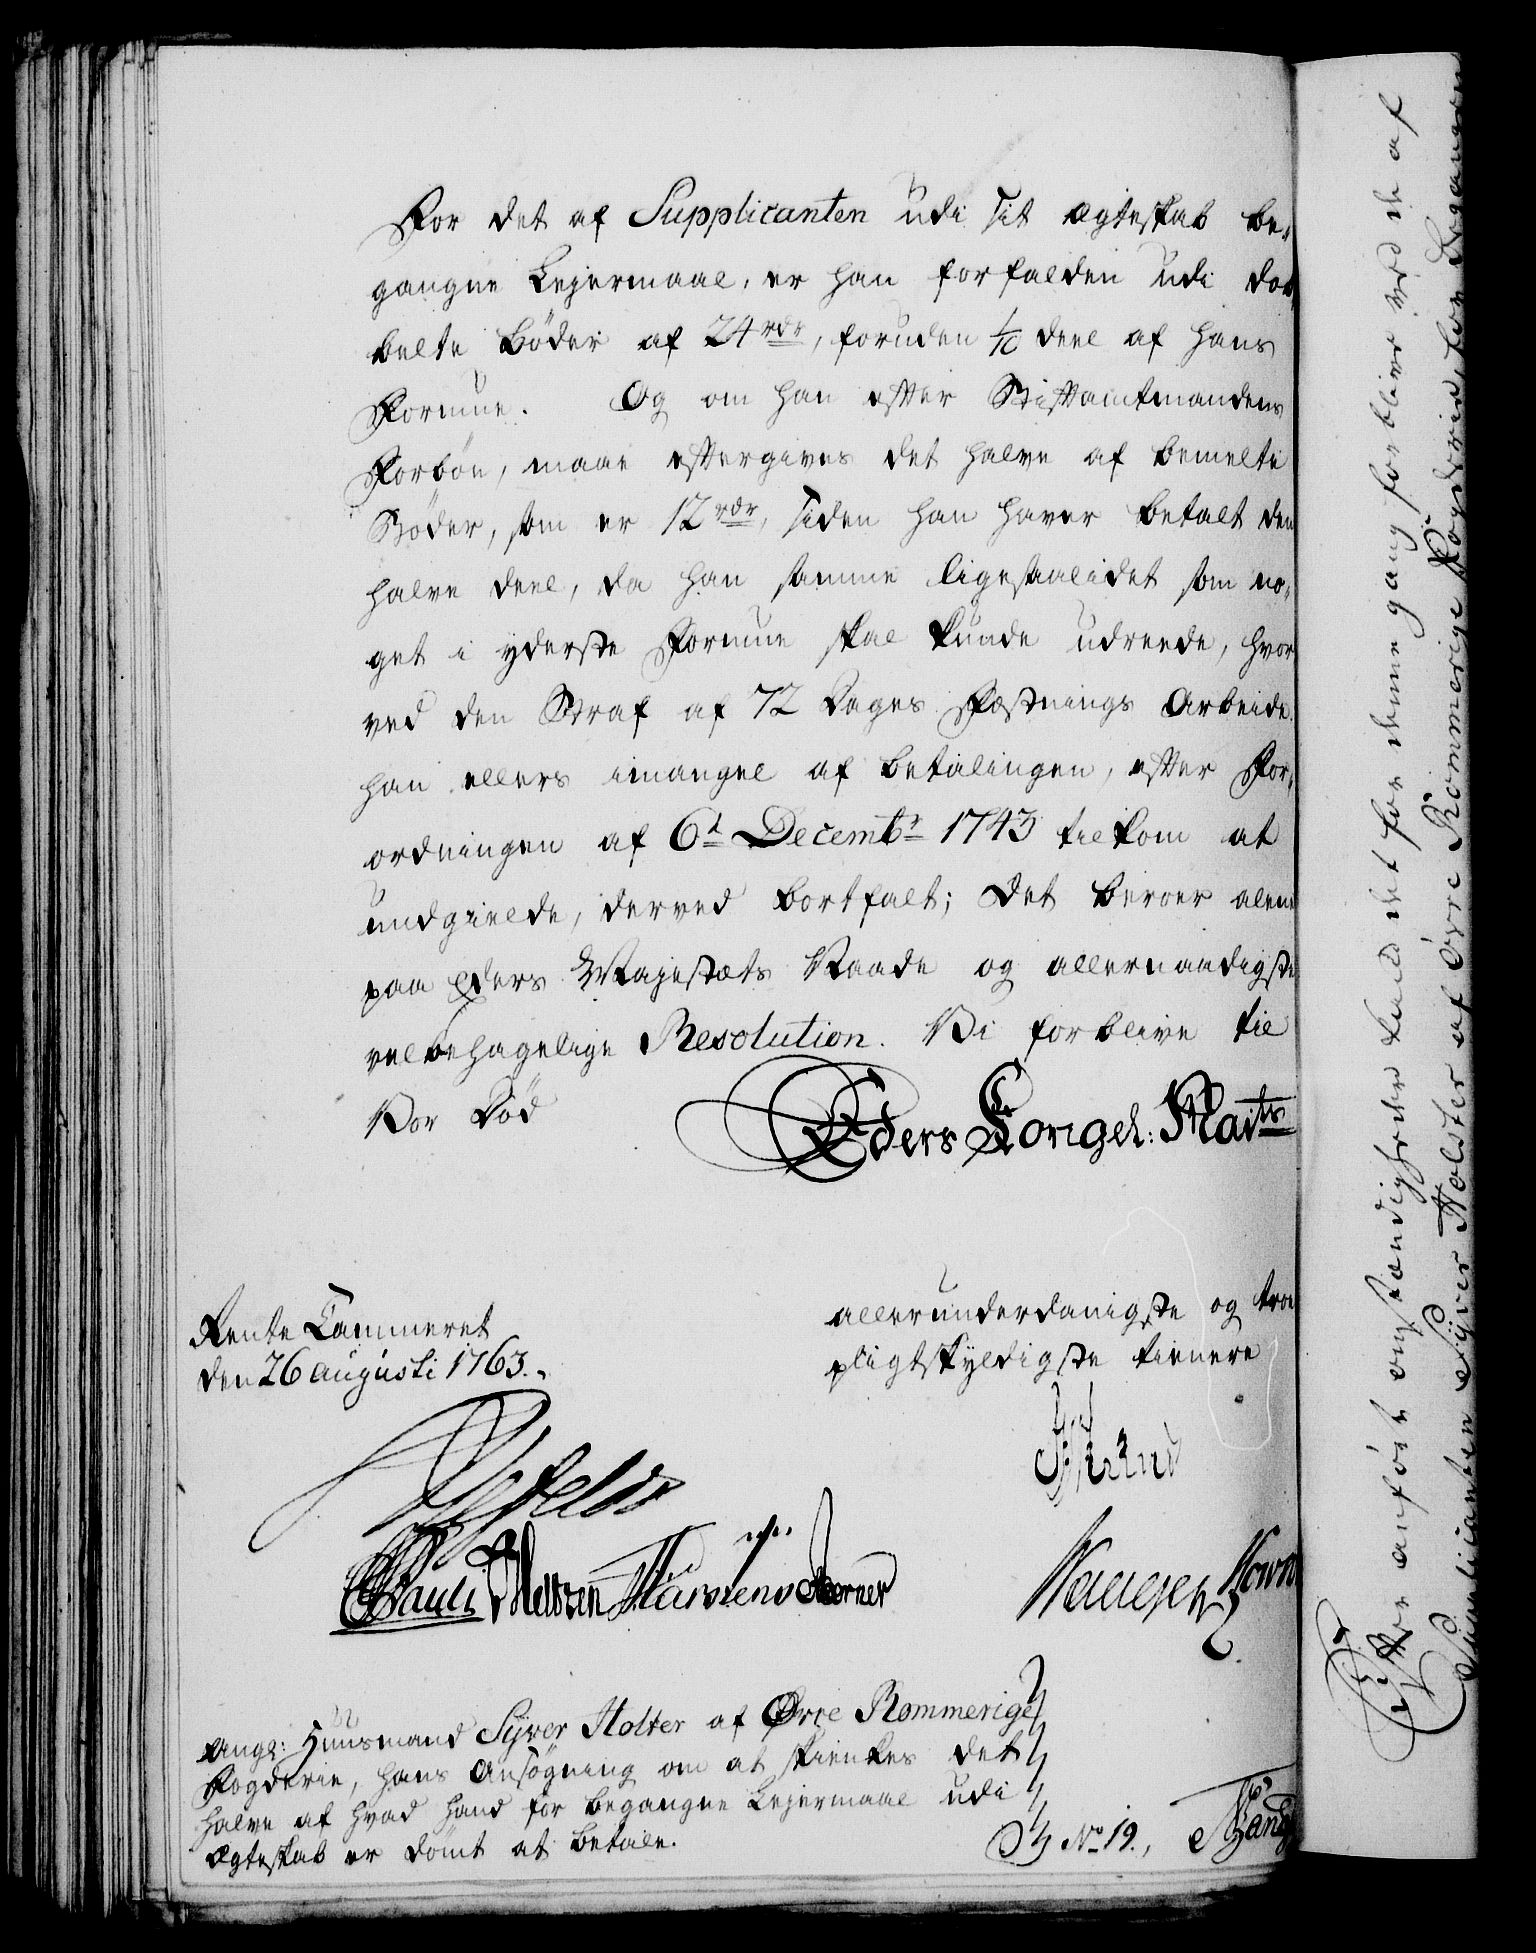 For det af Supplicanten udi sit ægteskab be-
gangne Lejermaal, er han forfalden udi dob-
belte Bøder af 24 rdr, foruden 1/10 deel af hans
Formue. Og om han efter Stiftamtmandens
Forbøn, maae eftergives det halve af bemelte
Bøder, som er 12 rdr, siden han haver betalt den
halve deel, da han samme ligesaalidet som no-
get i yderste Formue skal kunde udreede, hvor
ved den Straf af 72 Dages Fæstnings Arbeide
han ellers imangel af betalingen, efter For-
ordningen af 6t Decembr 1743 tilkom at
undgielde, derved bortfalt; Det beroer alene
paa Eders Majestæts Naade og allernaadigste
velbehagelige Resolution. Vi forblive til
Vor Død
Eders Kongel: Maits
allerunderdanigste og troe
pligtskyldigste tienere
Rente Cammeret
den 26 augusti 1763.
Pauli
Angl: Huusmand Syver Holter af Øvre Rommerige
Fogderie, hans Ansøgning om at skienkes det
halve af hvad hand for begangne Lejermaal udi
ægteskab er dømt at betale.
No 19.
Efter anførte omstændigheder det for denne gang forblive ved de af
Supplicanten Syver Holter af Øvre Rommerige Fogderie, for begangen